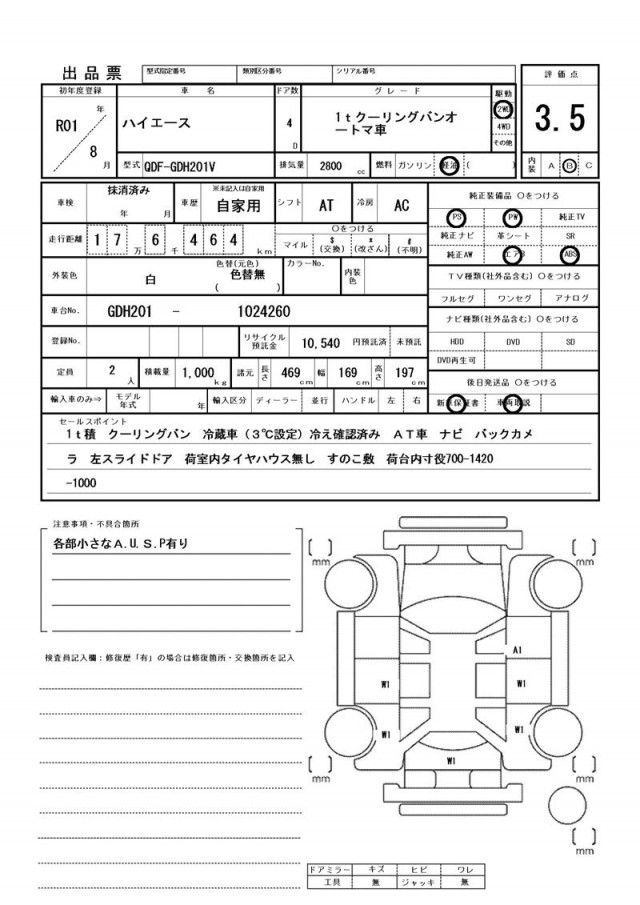 出品票 型式指定番号 類別区分番号 シリアル番号 評価点
初年度登録 車名 ドア数 グレード 駆動 3.5
R01 年 8 月 ハイエース 4 D 1tクーリングバンオ
ートマ車
2WD
4WD
その他
型式 QDF-GDH201V 排気量 2800 cc 燃料 ガソリン 軽油 ( ) 内装 A B C
車検 抹消済み 年 月 車歴 ※未記入は自家用 自家用 シフト AT 冷房 AC
純正装備品 Oをつける
PS PW 純正TV
走行距離 1 7 万 6 千 4 6 4 km Oをつける
マイル $ (交換) * (改ざん) # (不明)
純正ナビ 革シート SR
純正AW エアB ABS
外装色 白 色替(元色) 色替無 ( ) カラーNo. 内装色
TV種類(社外品含む) Oをつける
フルセグ ワンセグ アナログ
車台No. GDH201 - 1024260
ナビ種類(社外品含む) Oをつける
登録No. リサイクル預託金 10,540 円預託済 未預託
HDD DVD SD
DVD再生可
定員 2 人 積載量 1,000 kg 諸元 長さ 469 cm 幅 169 cm 高さ 197 cm
後日発送品 Oをつける
輸入車のみ⇒ モデル年式 年 輸入区分 ディーラー 並行 ハンドル 左 右
新車保証書 車両取説
セールスポイント
1t積 クーリングバン 冷蔵車(3℃設定)冷え確認済み AT車 ナビ バックカメ
ラ 左スライドドア 荷室内タイヤハウス無し すのこ敷 荷台内寸役700-1420
-1000
注意事項・不具合箇所
各部小さなA.U.S.P有り
検査員記入欄:修復歴「有」の場合は修復箇所・交換箇所を記入
[ ] mm [ ] mm
A1
W1 W1
W1 W1
W1
[ ] mm [ ] mm
[ ] mm
ドアミラー キズ ヒビ ワレ
工具 無 ジャッキ 無